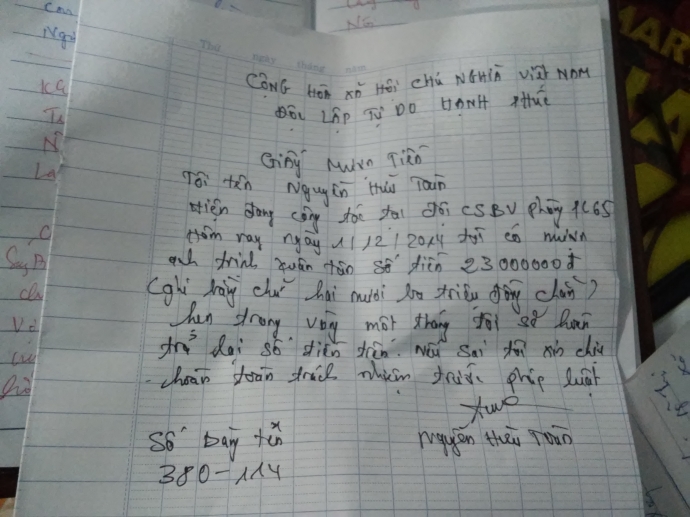 Thứ ngày tháng năm
CỘNG HÒA XÃ HỘI CHỦ NGHĨA VIỆT NAM
ĐỘC LẬP TỰ DO HẠNH PHÚC
GIẤY MƯỢN TIỀN
Tôi tên Nguyễn Hữu Toàn
Hiện đang công tác tại đội CSBV phòng PC65
Hôm nay ngày 1/12/2014 tôi có mượn
anh Trình Xuân Tôn số tiền 23000000đ
(ghi bằng chữ hai mươi ba triệu đồng chẵn)
hẹn trong vòng một tháng tôi sẽ hoàn
trả lại số tiền trên. Nếu sai tôi xin chịu
hoàn toàn trách nhiệm trước pháp luật
Nguyễn Hữu Toàn
Số
380-114
MAR